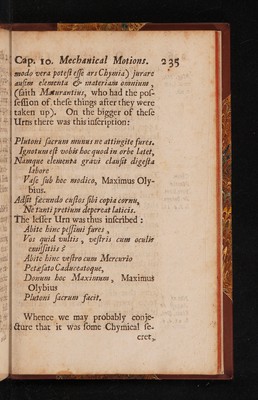 Cap. 10. Mechanical Motions. 235
modo vera potest esse ars Chymia) jurare
ausim elementa & materiam omnium,
(saith Maturantius, who had the pos-
session of these things after they were
taken up). On the bigger of these
Urns there was this inscription:
Plutoni sacrum munus ne attingite fures.
Ignotum est vobis hoc quod in orbe latet,
Namque elementa gravi clausit digesta
labore
Vase sub hoc modico, Maximus Oly-
bius.
Adsit fæcundo custos sibi copia cornu,
Ne tanti pretium depereat laticis.
The lesser Urn was thus inscribed:
Abite hinc pessimi fures,
Vos quid vultis, vestris cum oculis
emissitiis?
Abite hinc vestro cum Mercurio
Petasato Caduceatoque,
Donum hoc Maximum, Maximus
Olybius
Plutoni sacrum facit.
Whence we may probably conje-
cture that it was some Chymical se-
cret,